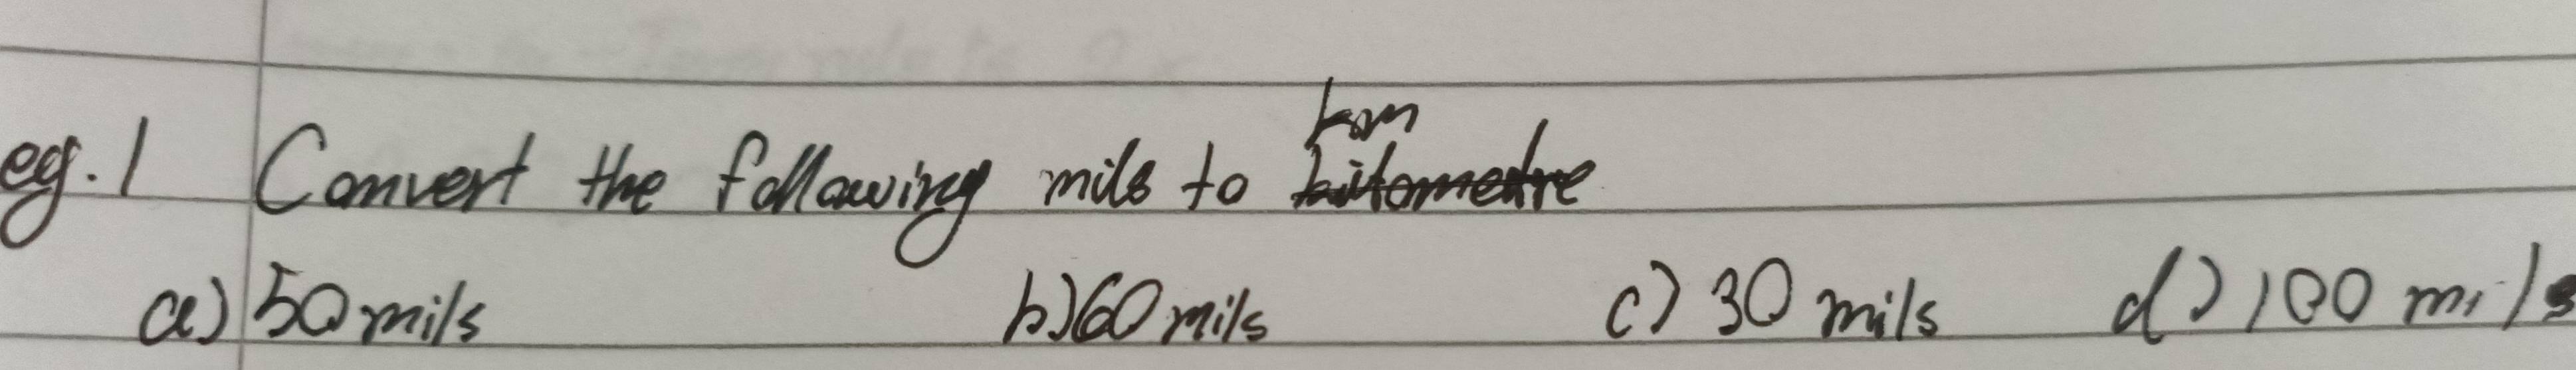 eg. 1 Convert the following mils to km
a) 50 mils b) 60 mils c) 30 mils d) 100 mils